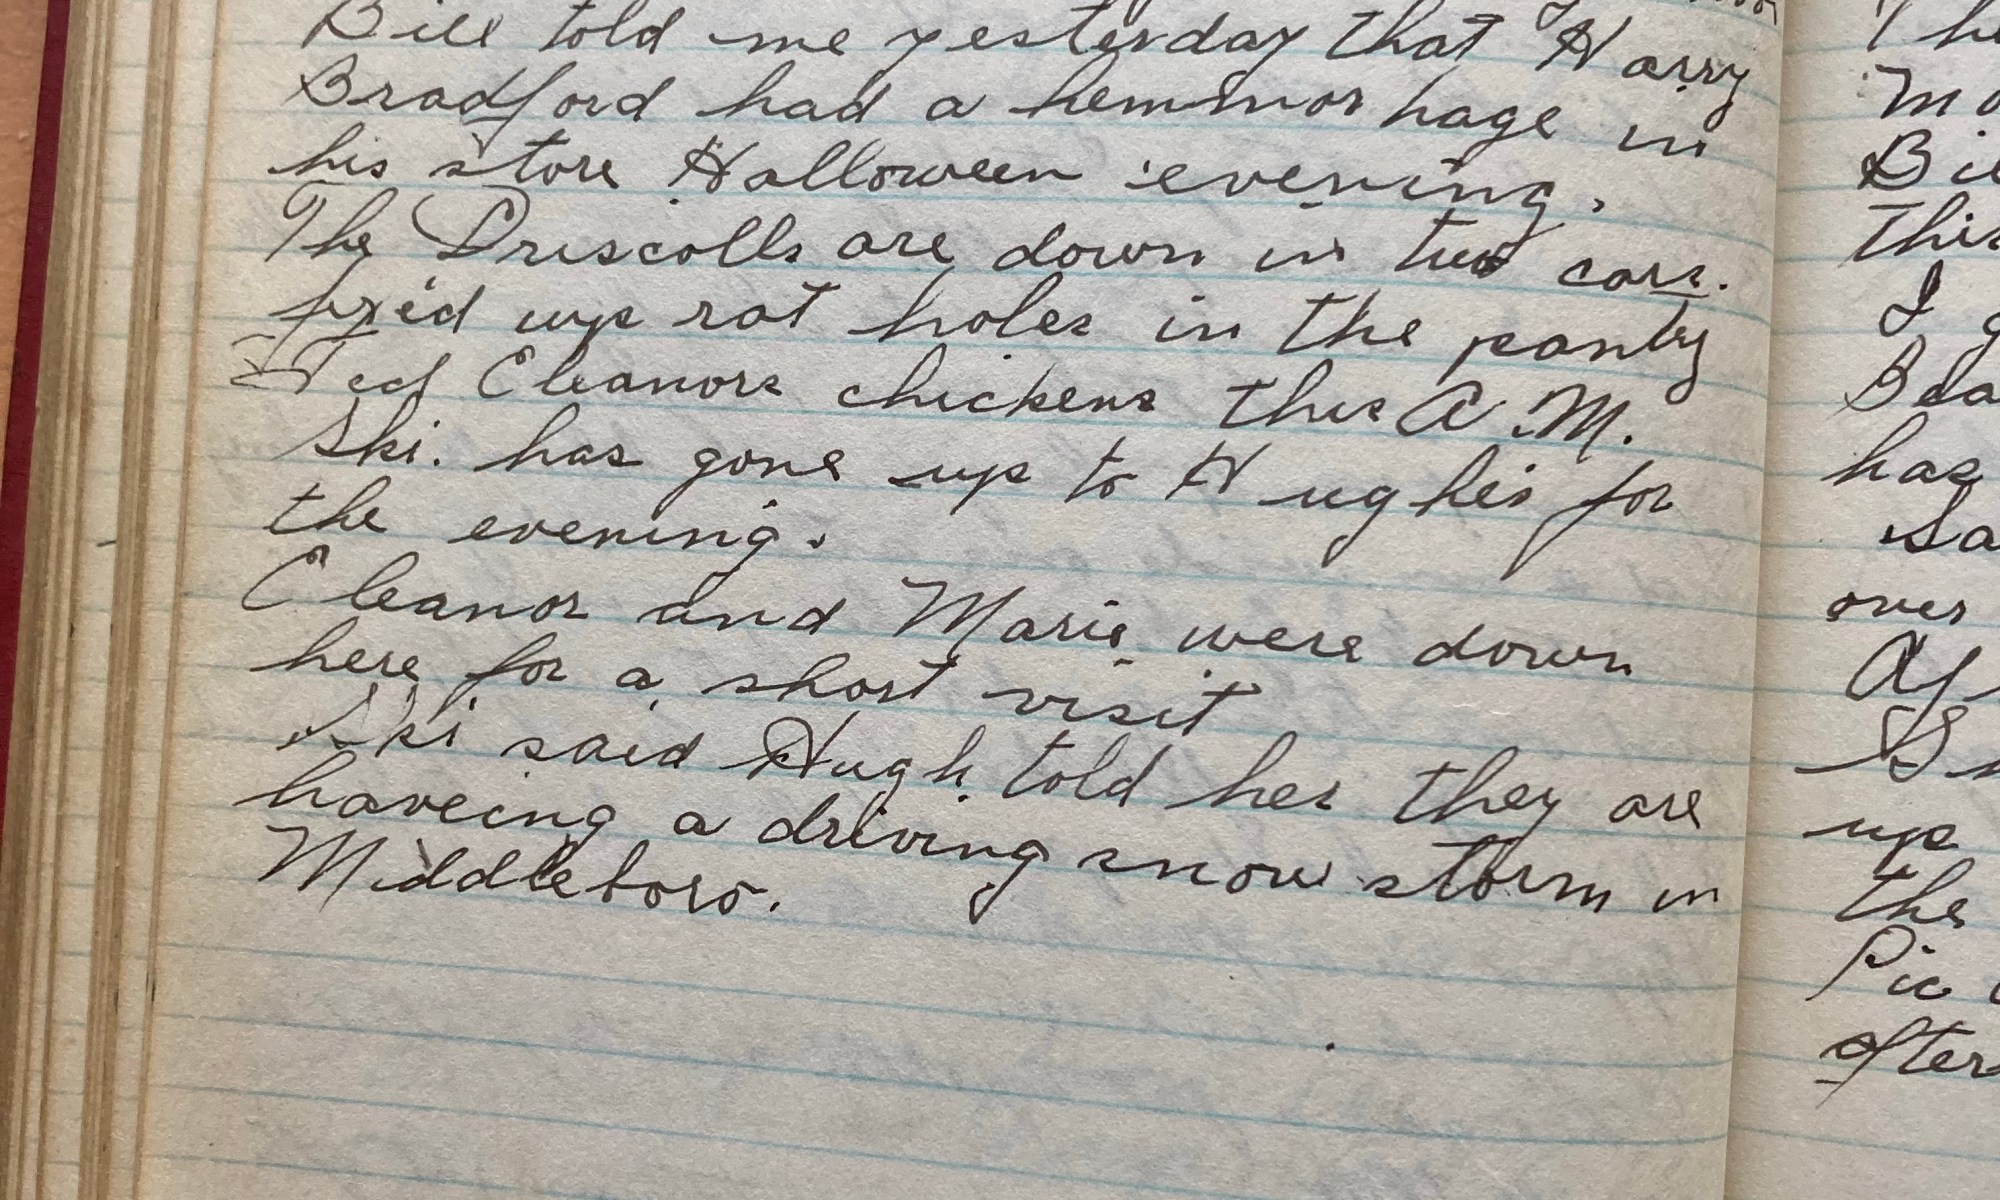 Bill told me yesterday that Harry
Bradford had a hemmorhage in
his store Halloween evening.
The Driscolls are down in two cars.
fixed up rat holes in the pantry
Fed Eleanors chickens this A.M.
Ski. has gone up to Hughes for
the evening.
Eleanor and Marie were down
here for a short visit
Ski said Hugh told her they are
haveing a driving snow storm in
Middleboro.
The
Mo
Bil
this
I g
Bea
has
Sa
over
Af
Sn
up
the
Pic
after